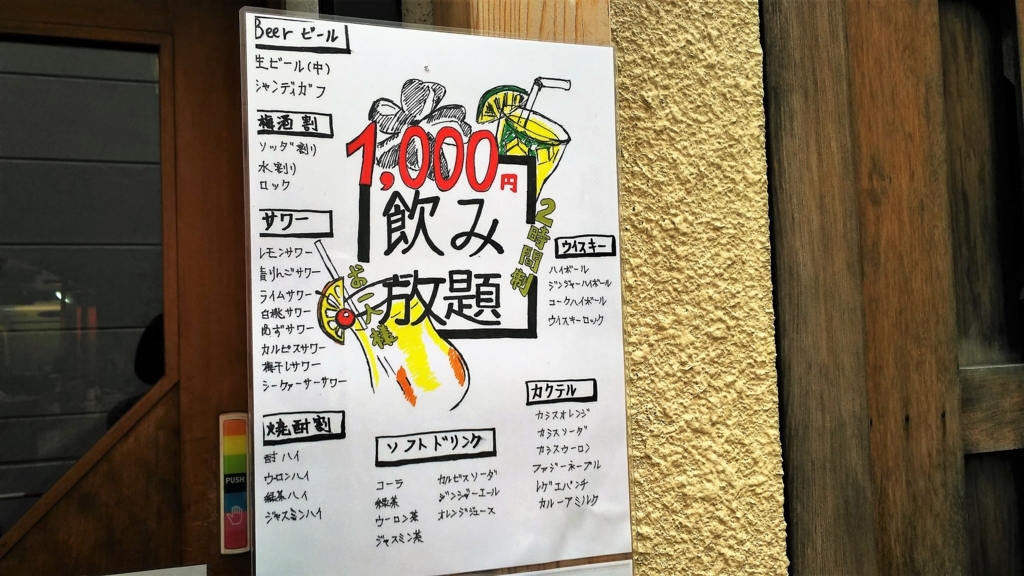 Beer ビール
生ビール(中)
シャンディガフ
梅酒割
ソーダ割り
水割り
ロック
サワー
レモンサワー
青りんごサワー
ライムサワー
白桃サワー
ゆずサワー
カルピスサワー
梅干しサワー
シークァーサーサワー
焼酎割
酎ハイ
ウロンハイ
緑茶ハイ
ジャスミンハイ
1,000円
飲み
放題
2時間制
お一人様
ソフトドリンク
コーラ
緑茶
ウーロン茶
ジャスミン茶
カルピスソーダ
ジンジャーエール
オレンジジュース
ウイスキー
ハイボール
ジンジャーハイボール
コークハイボール
ウイスキーロック
カクテル
カシスオレンジ
カシスソーダ
カシスウーロン
ファジーネーブル
レゲエパンチ
カルーアミルク
PUSH